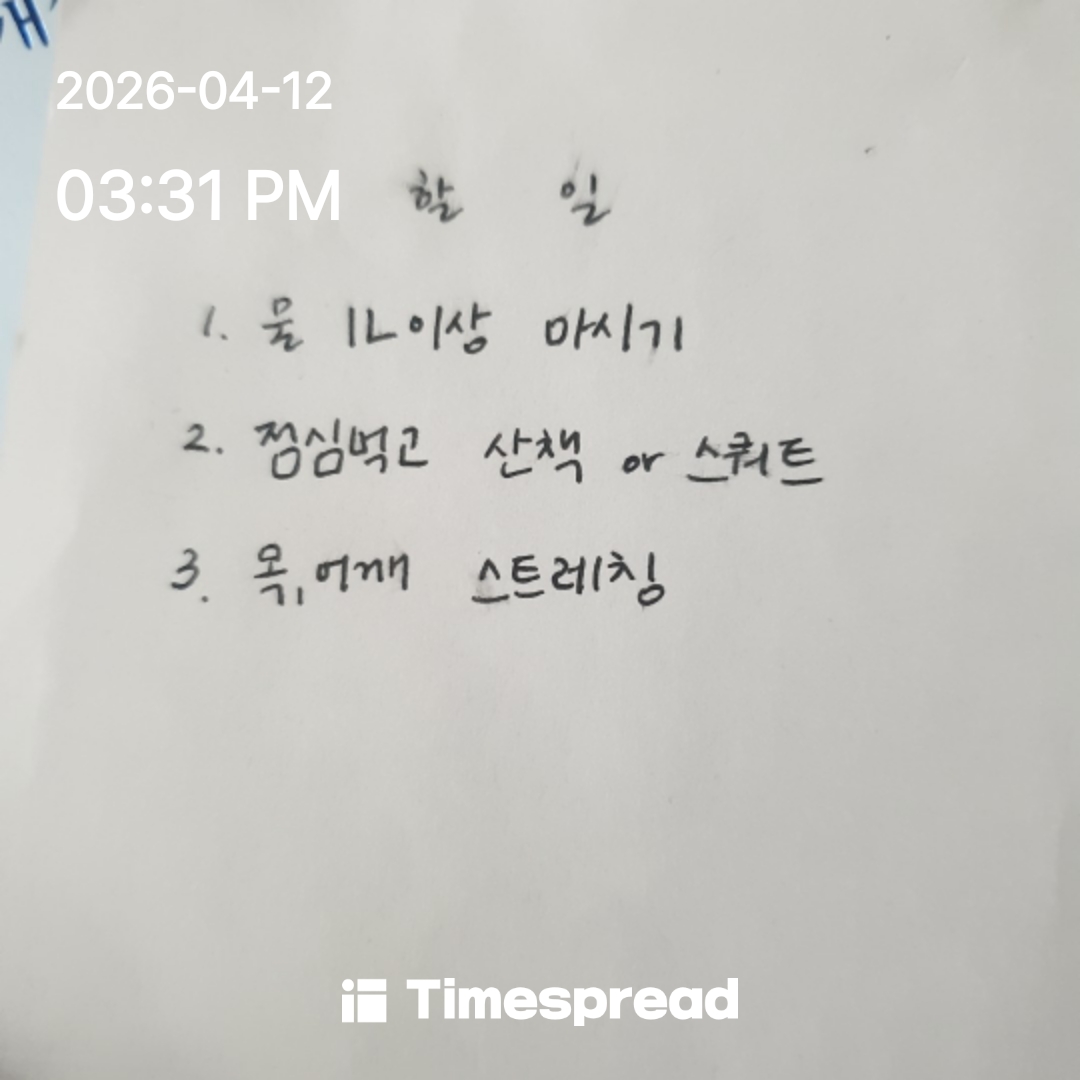 2026-04-12
03:31 PM
할 일
1. 물 1L이상 마시기
2. 점심먹고 산책 or 스쿼트
3. 목, 어깨 스트레칭
Timespread